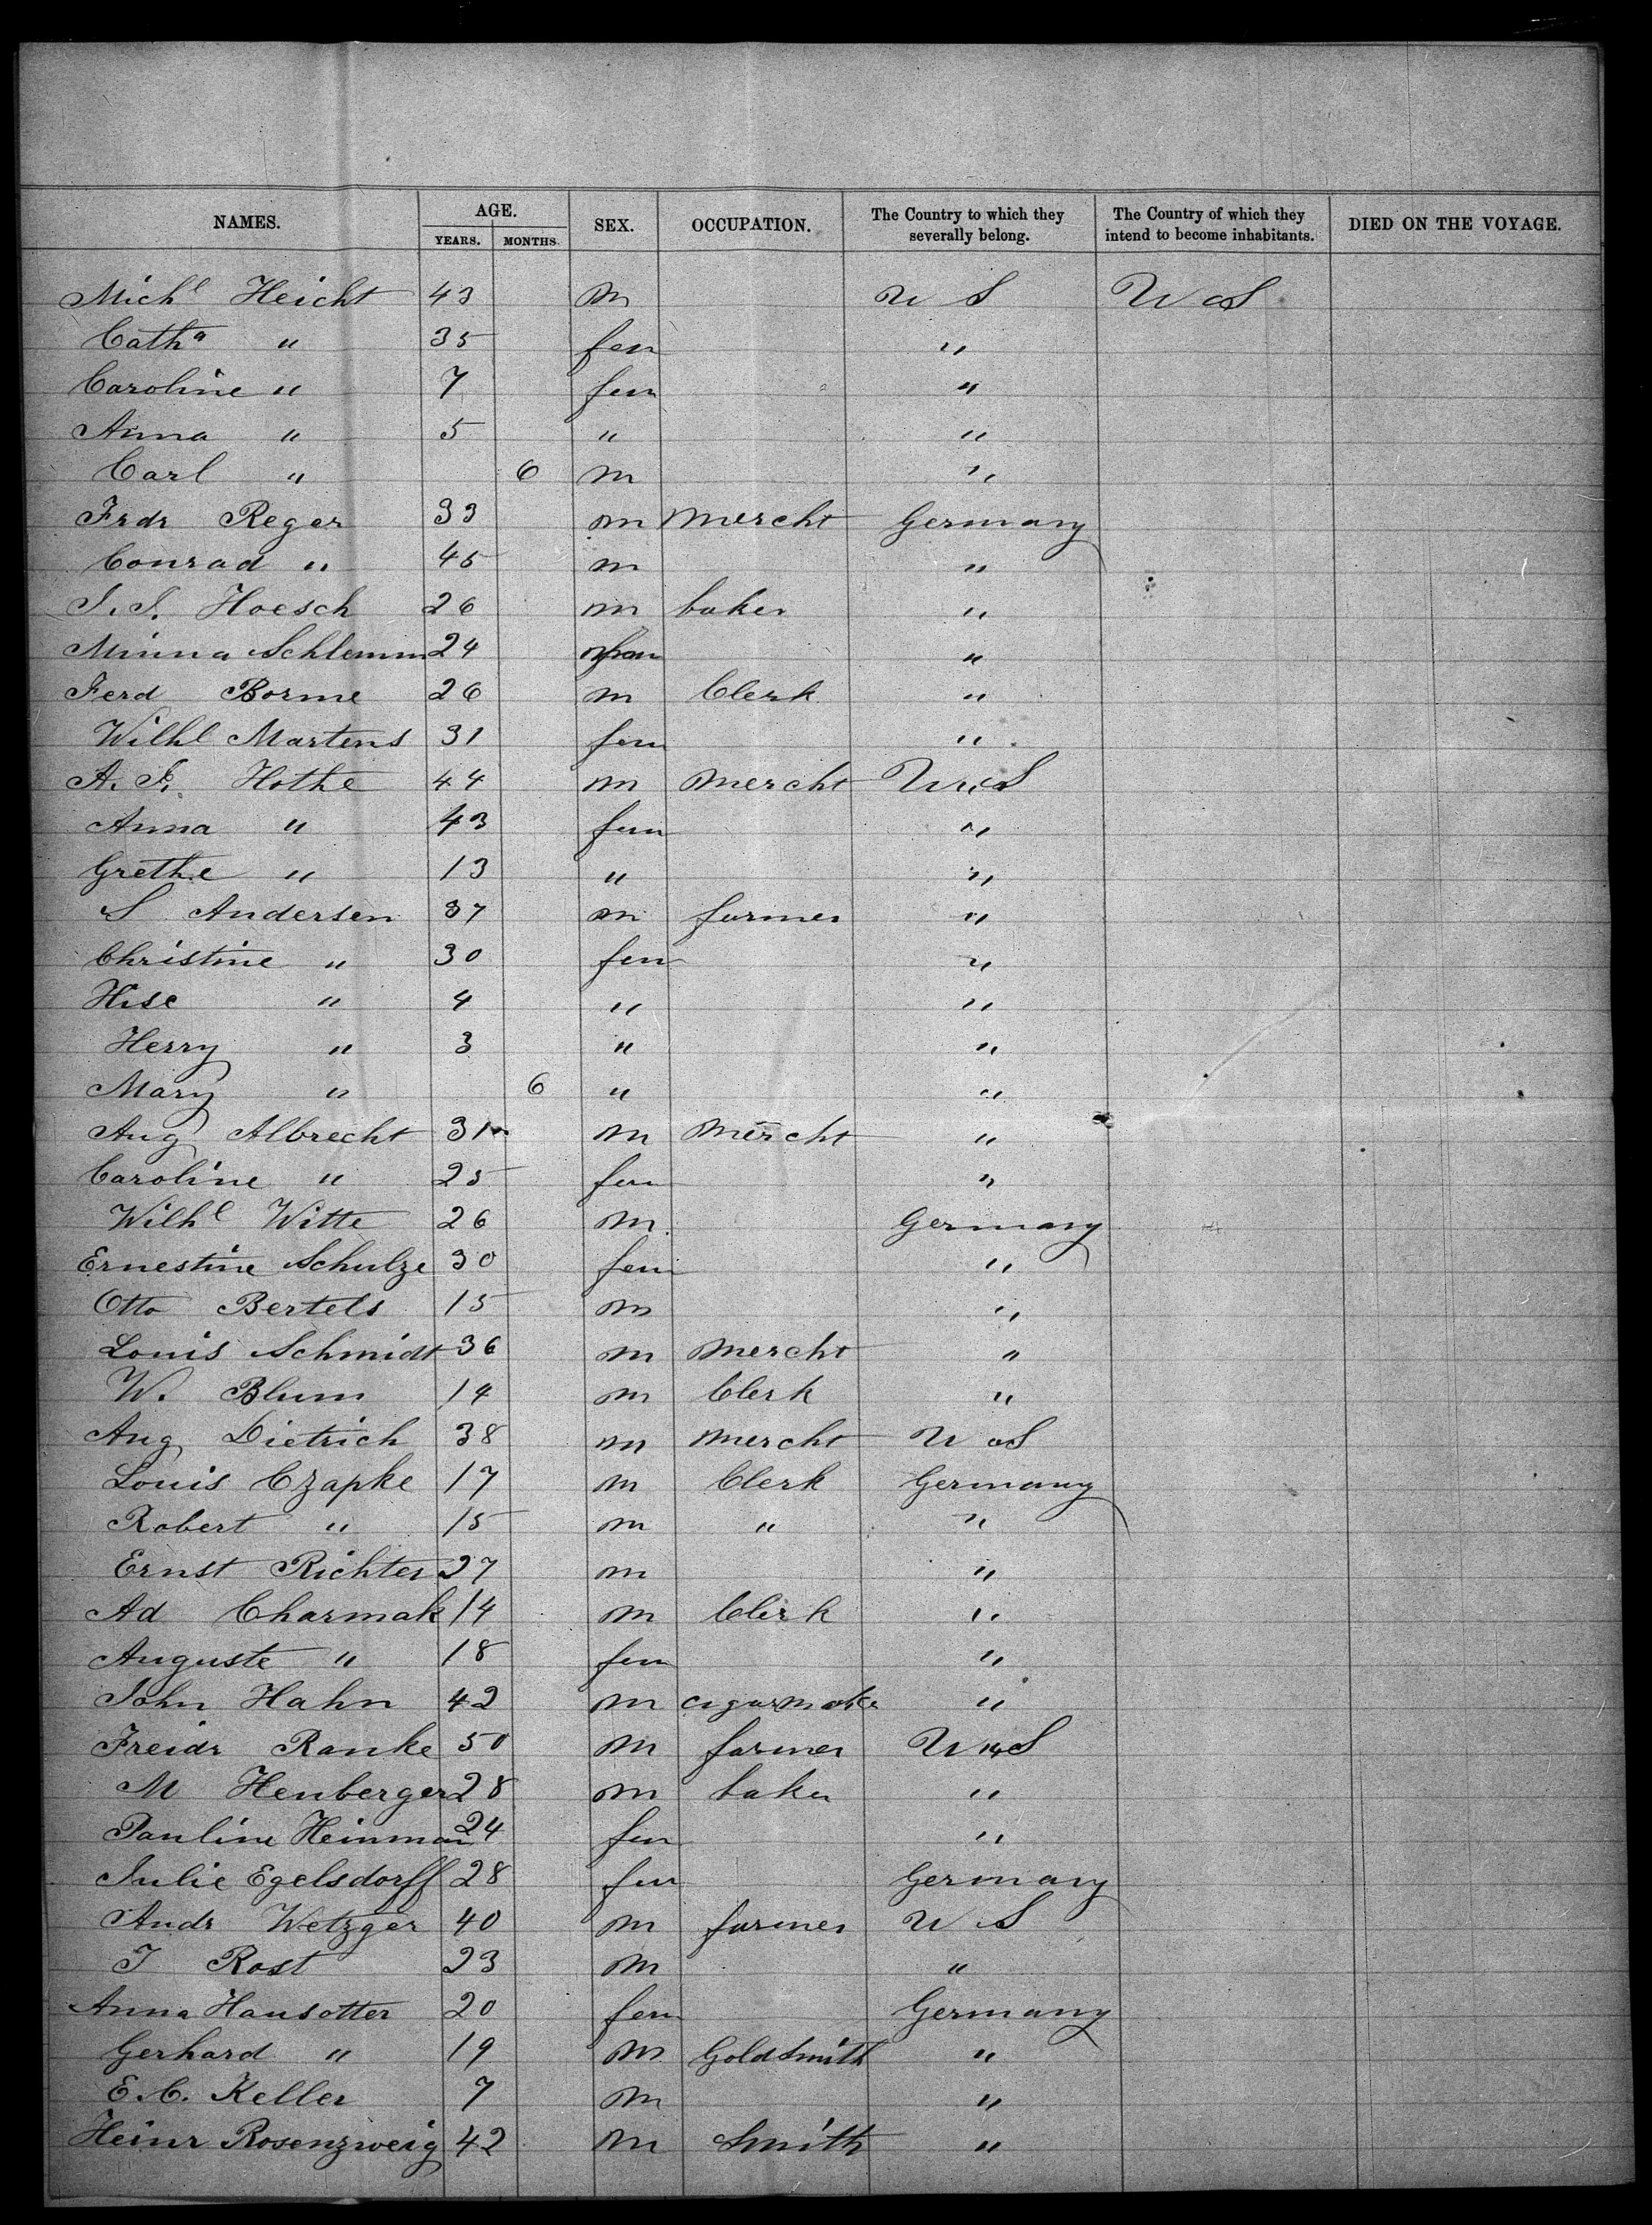 NAMES. AGE. SEX. OCCUPATION. The Country to which they severally belong. The Country of which they intend to become inhabitants. DIED ON THE VOYAGE.
YEARS. MONTHS.
Michl Heicht 43 m U S U S
Catha " 35 fem "
Caroline " 7 fem "
Anna " 5 " "
Carl " 6 m "
Frdr Reger 33 m Mercht Germany
Conrad " 45 m "
J. J. Hoesch 26 m baker "
Minna Schlemm 24 fem "
Ferd Borme 26 m Clerk "
Wilhl Martens 31 fem "
A. F. Hothe 44 m Mercht U S
Anna " 43 fem "
Grethe " 13 " "
S Andersen 37 m farmer "
Christine " 30 fem "
Hise " 4 " "
Herry " 3 " "
Mary " 6 " "
Aug Albrecht 31 m Mercht "
Caroline " 25 fem "
Wilhl Witte 26 m Germany
Ernestine Schulze 30 fem "
Otto Bertels 15 m "
Louis Schmidt 36 m Mercht "
W. Blum 14 m Clerk "
Aug Dietrich 38 m Mercht U S
Louis Czapke 17 m Clerk Germany
Robert " 15 m " "
Ernst Richter 27 m "
Ad Charmak 14 m Clerk "
Auguste " 18 fem "
John Hahn 42 m cigarmaker "
Freidr Ranke 50 m farmer U S
M Henberger 28 m baker "
Pauline Heinman 24 fem "
Julie Egelsdorff 28 fem Germany
Andr Wetzger 40 m farmer U S
J Rost 23 m "
Anna Hausotter 20 fem Germany
Gerhard " 19 m Goldsmith "
E. C. Keller 7 m "
Heinr Rosenzweig 42 m Smith "